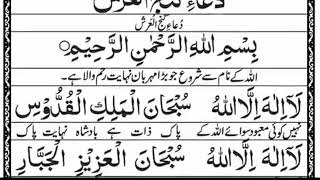 دُعَاءِ گنجُ الْعَرش
دُعَاءِ گنجُ الْعَرش
بِسْمِ اللهِ الرَّحْمٰنِ الرَّحِيْمِ
اللہ کے نام سے شروع جو بڑا مہربان نہایت رحم والا ہے۔
لَآ اِلٰهَ اِلَّا اللهُ سُبْحَانَ الْمَلِكِ الْقُدُّوْسِ
نہیں کوئی معبود سوائے اللہ کے پاک ذات ہے بادشاہ نہایت پاک
لَآ اِلٰهَ اِلَّا اللهُ سُبْحَانَ الْعَزِيْزِ الْجَبَّارِ